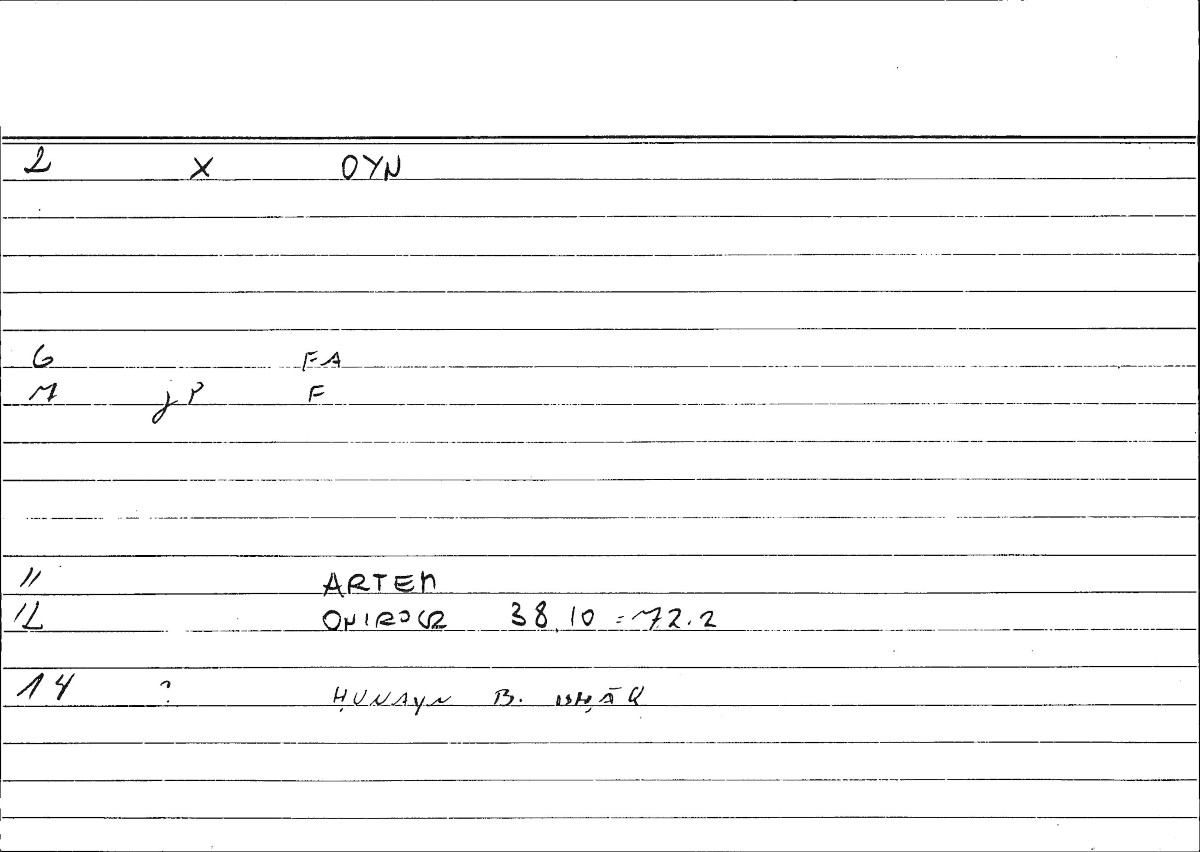 2 X OYN
6 FA
M jP F
11 ARTEM
12 ONIROCR 38.10 = 72.2
14 ? ḤUNAYN B. ISḤĀQ